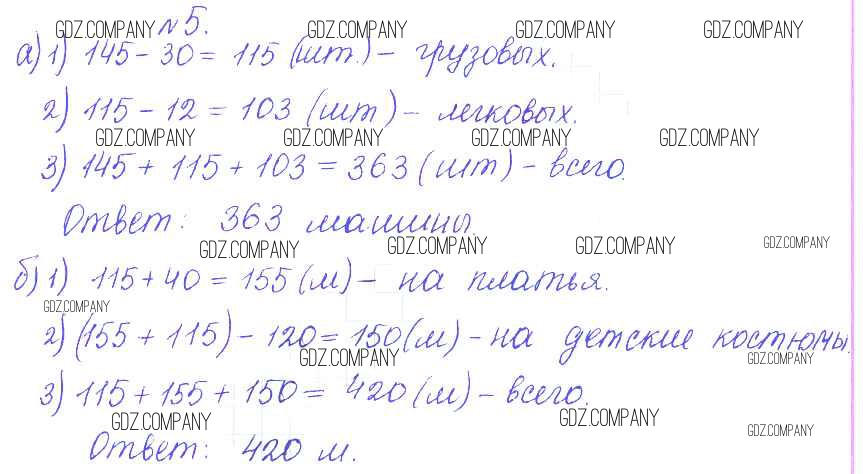 GDZ.COMPANY №5. GDZ.COMPANY GDZ.COMPANY GDZ.COMPANY
а) 1) 145 - 30 = 115 (шт.) - грузовых.
2) 115 - 12 = 103 (шт) - легковых.
GDZ.COMPANY GDZ.COMPANY GDZ.COMPANY GDZ.COMPANY
3) 145 + 115 + 103 = 363 (шт) - всего.
Ответ: 363 машины.
GDZ.COMPANY GDZ.COMPANY GDZ.COMPANY GDZ.COMPANY
б) 1) 115 + 40 = 155 (м) - на платья.
GDZ.COMPANY
2) (155 + 115) - 120 = 150 (м) - на детские костюмы.
GDZ.COMPANY GDZ.COMPANY
3) 115 + 155 + 150 = 420 (м) - всего.
GDZ.COMPANY GDZ.COMPANY GDZ.COMPANY
Ответ: 420 м.